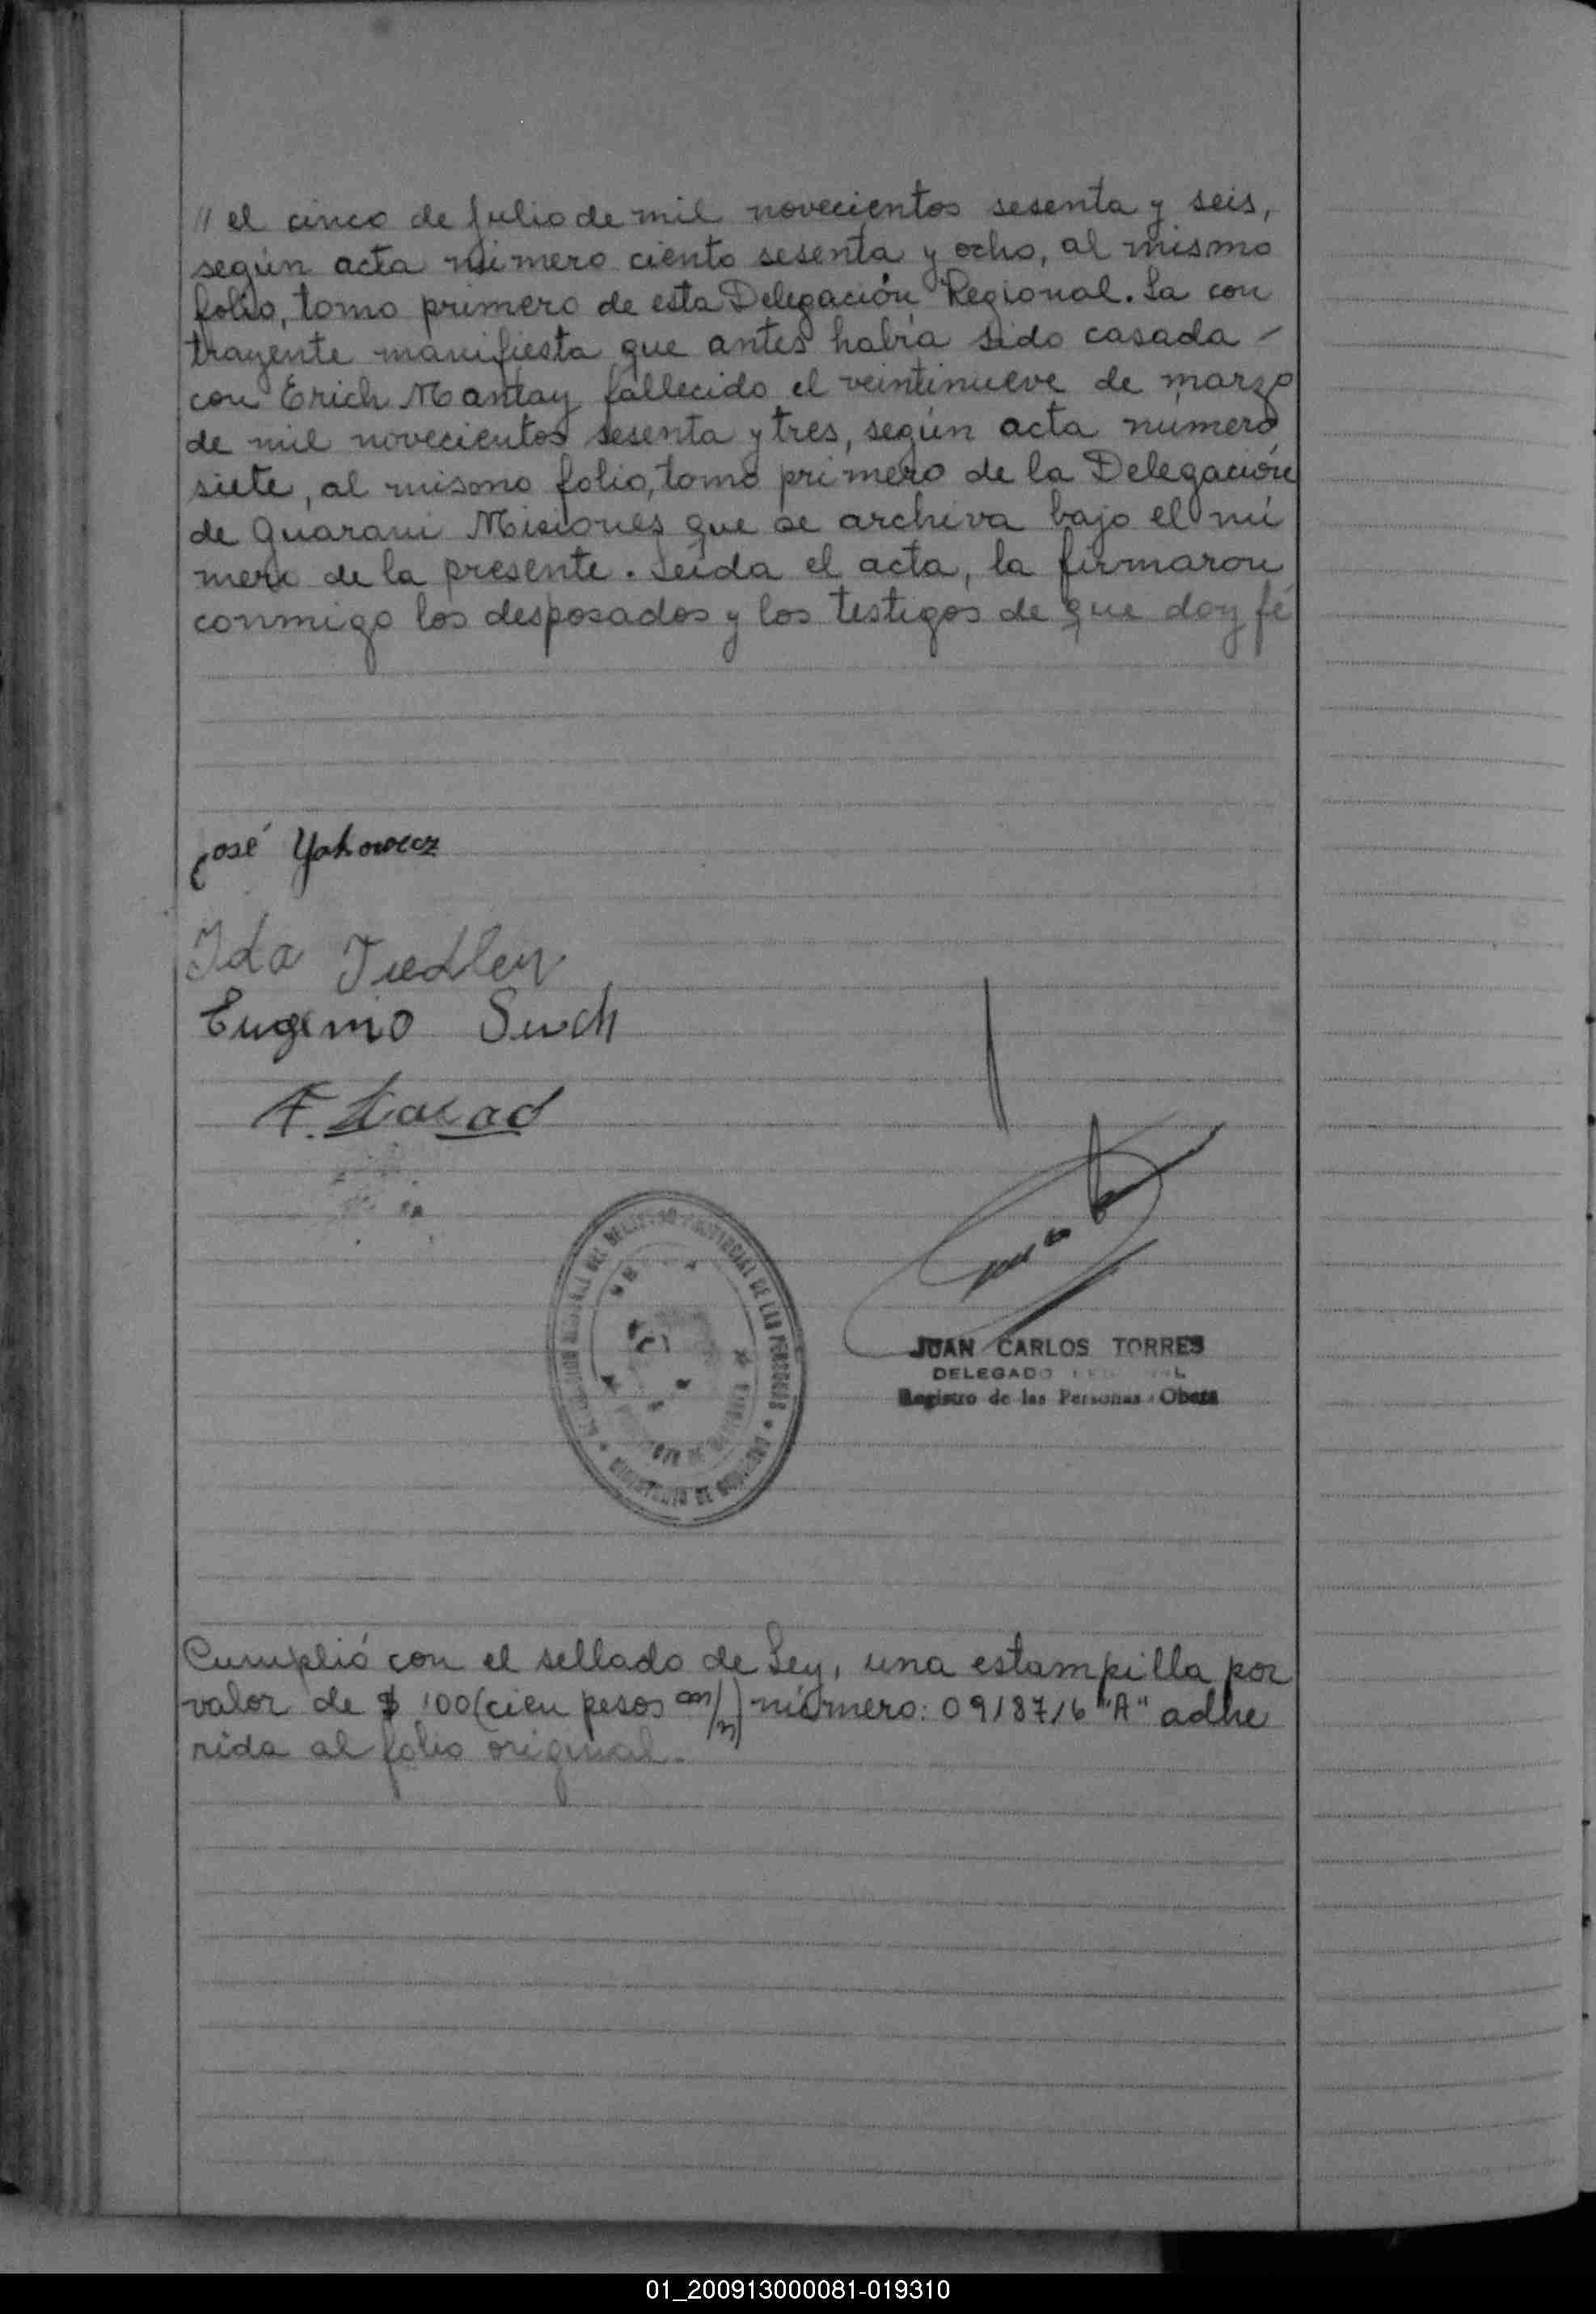 // el cinco de julio de mil novecientos sesenta y seis,
según acta número ciento sesenta y ocho, al mismo
folio, tomo primero de esta Delegación Regional. La con
trayente manifiesta que antes había sido casada -
con Erich Mantay fallecido el veintinueve de marzo
de mil novecientos sesenta y tres, según acta número
siete, al misomo folio, tomo primero de la Delegación
de Guarani Misiones que se archiva bajo el nú
mero de la presente. Leída el acta, la firmaron
conmigo los desposados y los testigos de que doy fé
José Yakowecz
Ida
Eugenio
PROVINCIAL DE LAS PERSONAS
MINISTERIO DE GOBIERNO
JUAN CARLOS TORRES
DELEGADO
Registro de las Personas - Obera
Cumplió con el sellado de Ley, una estampilla por
valor de $ 100 (cien pesos m/n) número: 0918716 "A" adhe
rida al folio original.
01_200913000081-019310